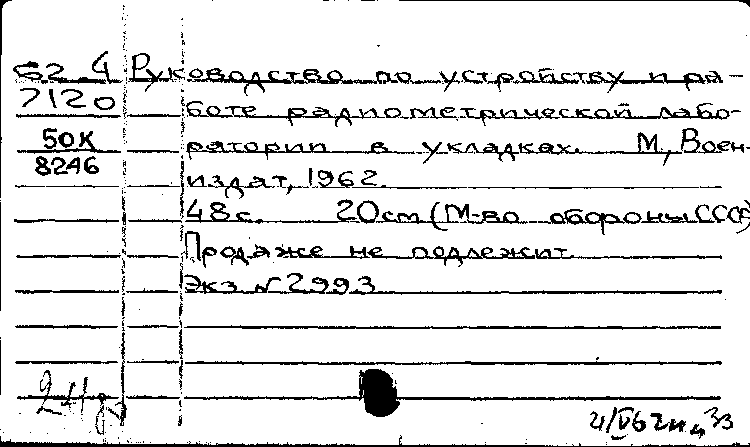 62.4 Руководство по устройству и ра-
7120 боте радиометрической лабо-
50К ратории в укладках. М, Воен-
8246
издат, 1962.
48с. 20см (М-во обороны СССР)
Продаже не подлежит
Экз № 2993